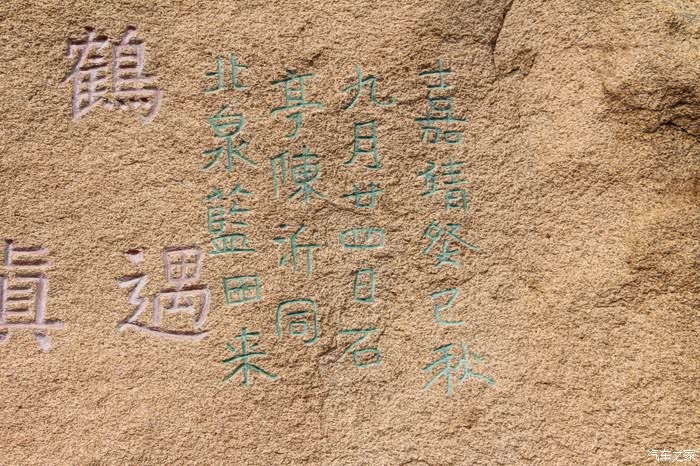 嘉靖癸巳秋
九月廿四日石
亭陳沂同
北泉藍田来
鶴
遇眞
汽车之家